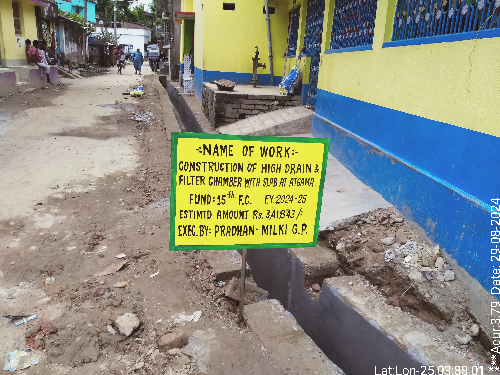 :-NAME OF WORK:-
CONSTRUCTION OF HIGH DRAIN &
FILTER CHAMBER WITH SLAB AT ATGAMA.
FUND:15th F.C. F.Y.2024-25
ESTIMTD AMOUNT Rs. 3,41,843/-
EXEC.BY:- PRADHAN- MILKI G.P.
Lat:Lon-25.03,88.01
***Acur:3.79 Date: 29-08-2024